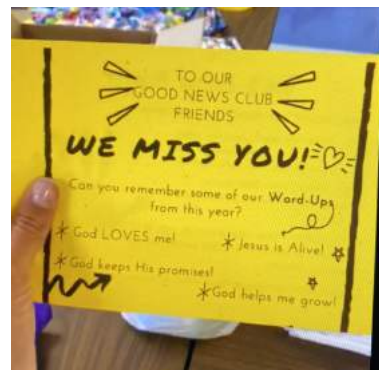 TO OUR
GOOD NEWS CLUB
FRIENDS
WE MISS YOU!
Can you remember some of our Word-Ups
from this year?
* God LOVES me!
* Jesus is Alive!
* God keeps His promises!
* God helps me grow!